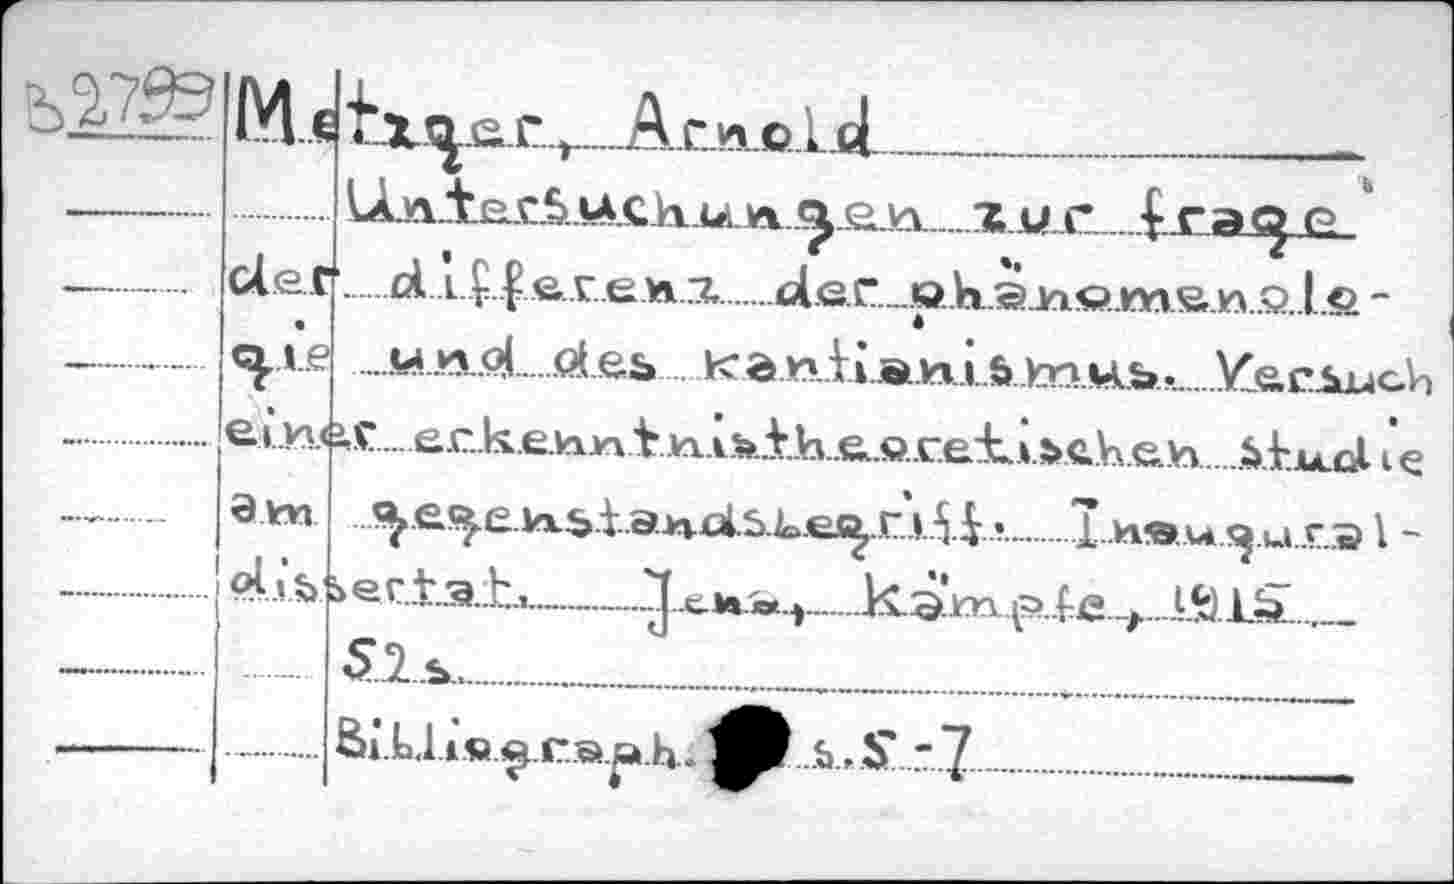 B2799 Metzger, Arnold
Untersuchungen zur frage
der differenz der phänomenolo-
gie und des kantianismus. Versuch
einer erkenntnistheoretischen studie
am gegenstandsbegriff. Inaugural-
dissertat. Jena, Kämpfe, 1915.
52 s.
Bibliograph. s. 5-7